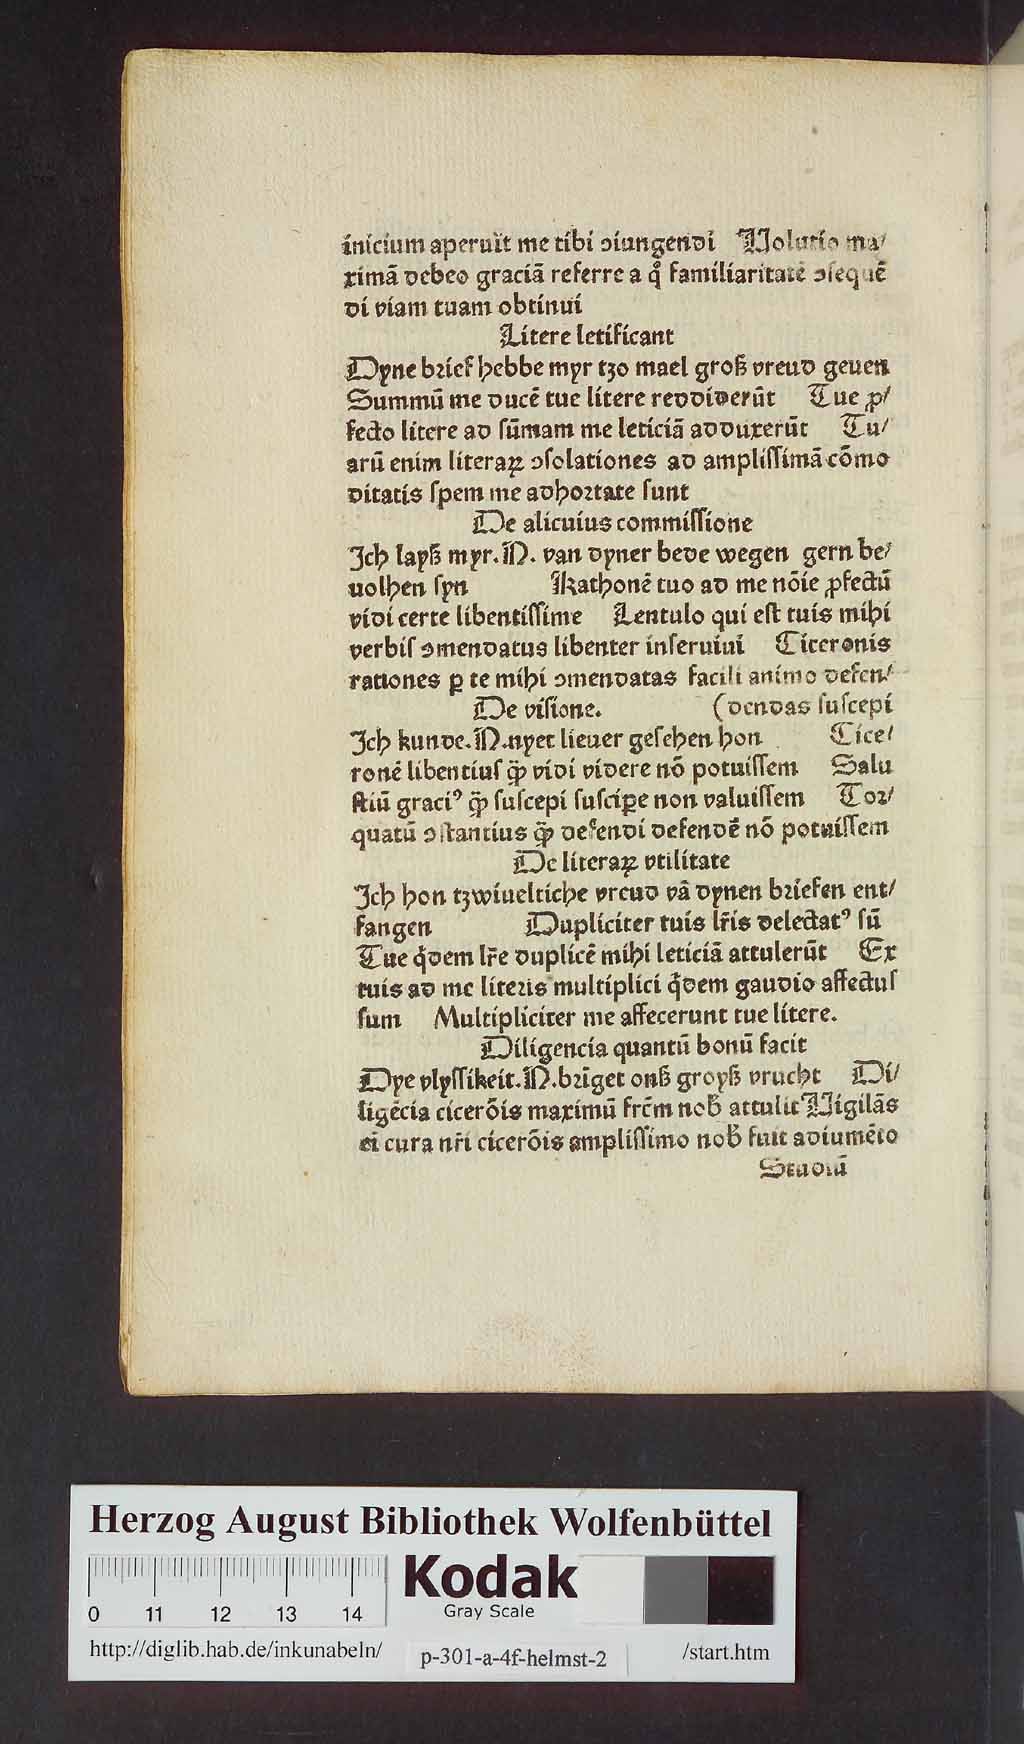 inicium aperuit me tibi ↄiungendi Uolutio ma/
ximā debeo graciā referre a qͦ familiaritatē ↄsequē
di viam tuam obtinui
Litere letificant
Dyne brief hebbe myr tzo mael groß vreud geuen
Summū me ducē tue litere reddiderūt Tue ꝓ/
fecto litere ad sūmam me leticiā adduxerūt Tu/
arū enim literaꝝ ↄsolationes ad amplissimā cōmo
ditatis spem me adhortate sunt
De alicuius commissione
Ich layß myr. N. van dyner bede wegen gern be/
uolhen syn Kathonē tuo ad me nōie ꝓfectū
vidi certe libentissime Lentulo qui est tuis mihi
verbis ↄmendatus libenter inseruiui Ciceronis
rationes ꝑ te mihi ↄmendatas facili animo defen/
De visione. (dendas suscepi
Ich kunde. N. nyet lieuer gesehen hon Cice/
ronē libentius qꝫ̄ vidi videre nō potuissem Salu
stiū graciꝰ qꝫ̄ suscepi susciꝑe non valuissem Tor/
quatū ↄstantius qꝫ̄ defendi defendē nō potuissem
De literaꝝ vtilitate
Ich hon tzwiueltiche vreud vā dynen briefen ent/
fangen Dupliciter tuis lr̄is delectatꝰ sū
Tue qͥdem lr̄e duplicē mihi leticiā attulerūt Ex
tuis ad me literis multiplici qͥdem gaudio affectus
sum Multipliciter me affecerunt tue litere.
Diligencia quantū bonū facit
Dye vlyssikeit. N. brīget onß groyß vrucht Di/
ligēcia cicerōis maximū frc̄m nob̄ attulit Uigilās
ei cura nr̄i cicerōis amplissimo nob̄ fuit adiumēto
Studiū
Herzog August Bibliothek Wolfenbüttel
0 11 12 13 14
Kodak
Gray Scale
http://diglib.hab.de/inkunabeln/ p-301-a-4f-helmst-2 /start.htm